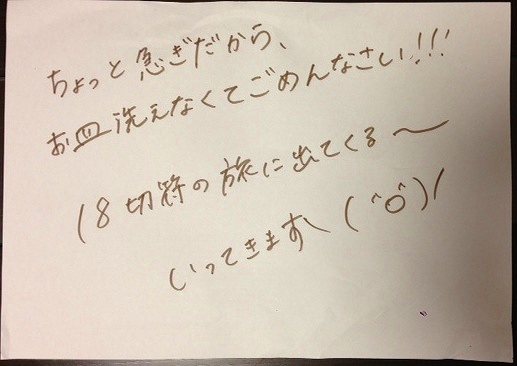 ちょっと急ぎだから、
お皿洗えなくてごめんなさい!!!
18切符の旅に出てくる〜
いってきます\(^o^)/